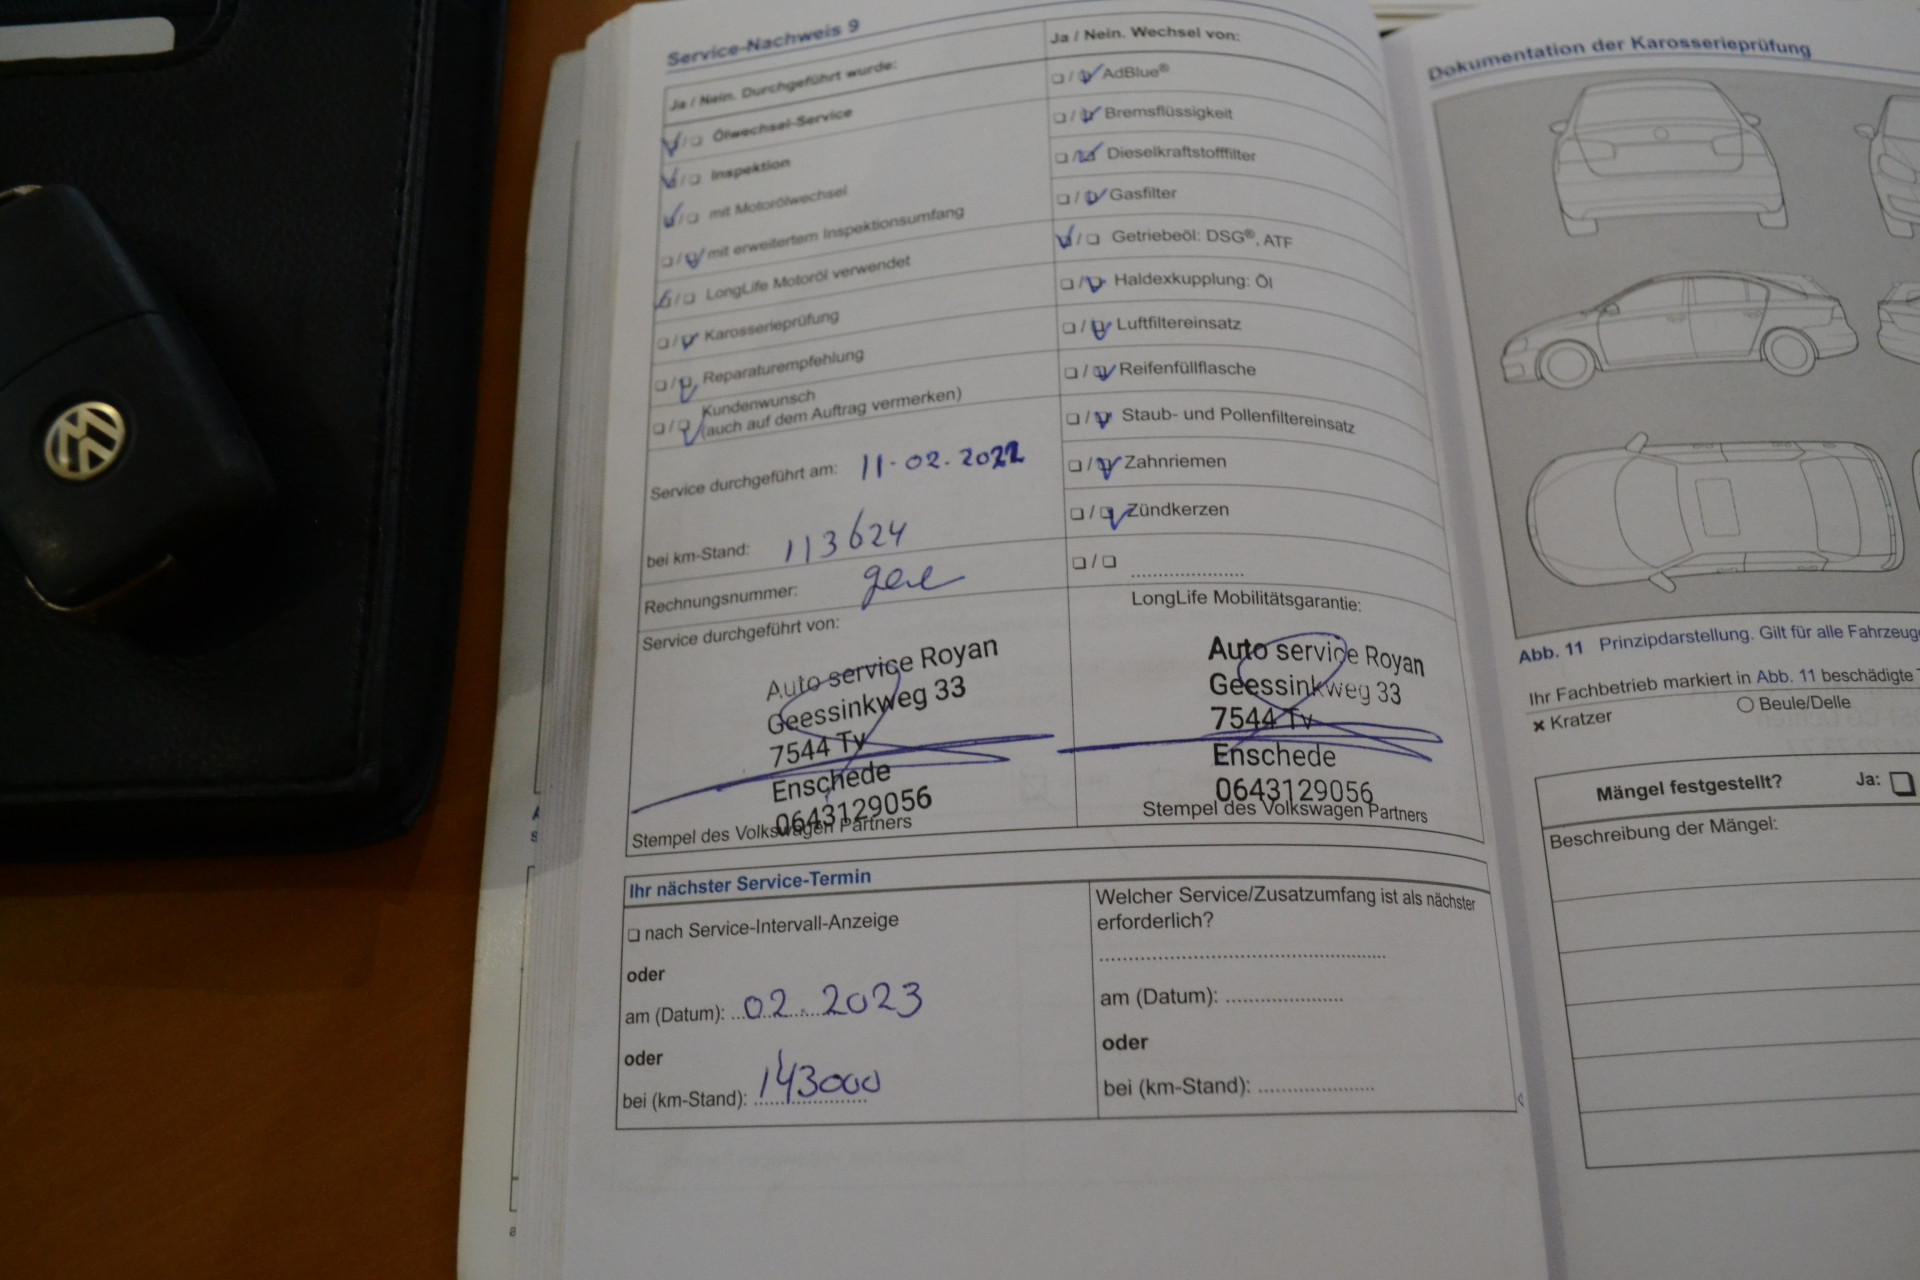 Service-Nachweis 9
Ja / Nein. Durchgeführt wurde:
Ölwechsel-Service
Inspektion
mit Motorölwechsel
mit erweitertem Inspektionsumfang
LongLife Motoröl verwendet
Karosserieprüfung
Reparaturempfehlung
Kundenwunsch
(auch auf dem Auftrag vermerken)
Service durchgeführt am: 11-02.2022
bei km-Stand: 113624
Rechnungsnummer:
Service durchgeführt von:
Auto service Royan
Geessinkweg 33
7544 Tv
Enschede
0643129056
Stempel des Volkswagen Partners
Ja / Nein. Wechsel von:
AdBlue®
Bremsflüssigkeit
Dieselkraftstofffilter
Gasfilter
Getriebeöl: DSG®, ATF
Haldexkupplung: Öl
Luftfiltereinsatz
Reifenfüllflasche
Staub- und Pollenfiltereinsatz
Zahnriemen
Zündkerzen
LongLife Mobilitätsgarantie:
Auto service Royan
Geessinkweg 33
7544 Tv
Enschede
0643129056
Stempel des Volkswagen Partners
Ihr nächster Service-Termin
nach Service-Intervall-Anzeige
oder
am (Datum): 02.2023
oder
bei (km-Stand): 143000
Welcher Service/Zusatzumfang ist als nächster
erforderlich?
am (Datum):
oder
bei (km-Stand):
Dokumentation der Karosserieprüfung
Abb. 11 Prinzipdarstellung. Gilt für alle Fahrzeug
Ihr Fachbetrieb markiert in Abb. 11 beschädigte
× Kratzer
Beule/Delle
Mängel festgestellt? Ja:
Beschreibung der Mängel: